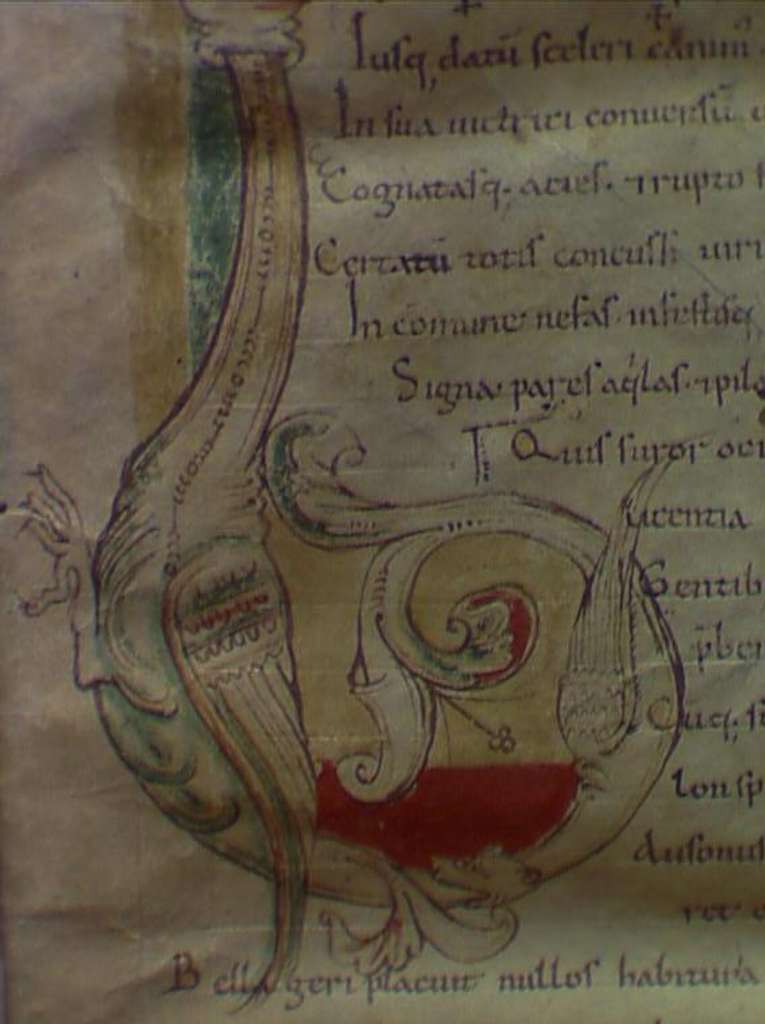 Iusq; datū sceleri canimꝰ
In sua uictrici conuersū
Cognatasq; acies. ⁊ rupto f
Certatū totis concussi uiri
In comune nefas. infestisq;
Signa pares aqilas. ⁊ pila
Quis furor o ci
licentia
Gentib
p̄ber
Cūq; su
lon sp
Ausoniis
ret
Bella geri placuit nullos habitura